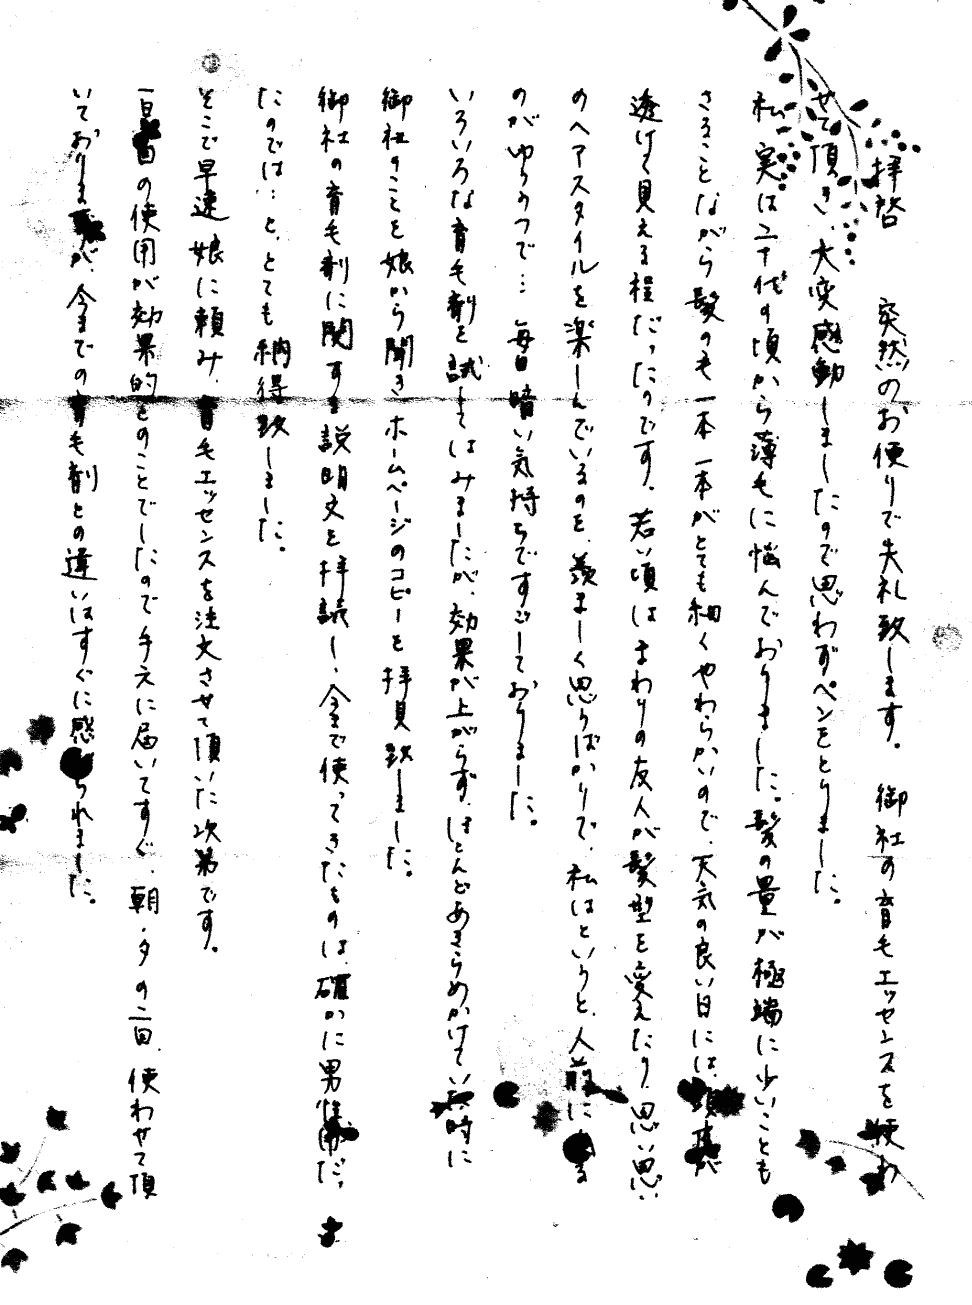 拝啓　突然のお便りで失礼致します。　御社の育毛エッセンスを使わ
せて頂き、大変感動しましたので思わずペンをとりました。
私、実は二十代の頃から薄毛に悩んでおりました。髪の量が極端に少いことも
さることながら髪の毛一本一本がとても細くやわらかいので、天気の良い日には、頭皮が
透けて見える程だったのです。若い頃はまわりの友人が髪型を変えたり、思い思い
のヘアスタイルを楽しんでいるのを、羨ましく思うばかりで、私はというと、人前に出る
のがゆううつで… 毎日暗い気持ちですごしておりました。
いろいろな育毛剤を試してはみましたが、効果が上がらず、ほとんどあきらめかけていた時に
御社のことを娘から聞きホームページのコピーを拝見致しました。
御社の育毛剤に関する説明文を拝読し、今まで使ってきたものは、確かに男性用だっ
たのでは…と、とても納得致しました。
そこで早速娘に頼み、育毛エッセンスを注文させて頂いた次第です。
一日二回の使用が効果的とのことでしたので手元に届いてすぐ、朝・夕の二回、使わせて頂
いておりますが、今までの育毛剤との違いはすぐに感じられました。